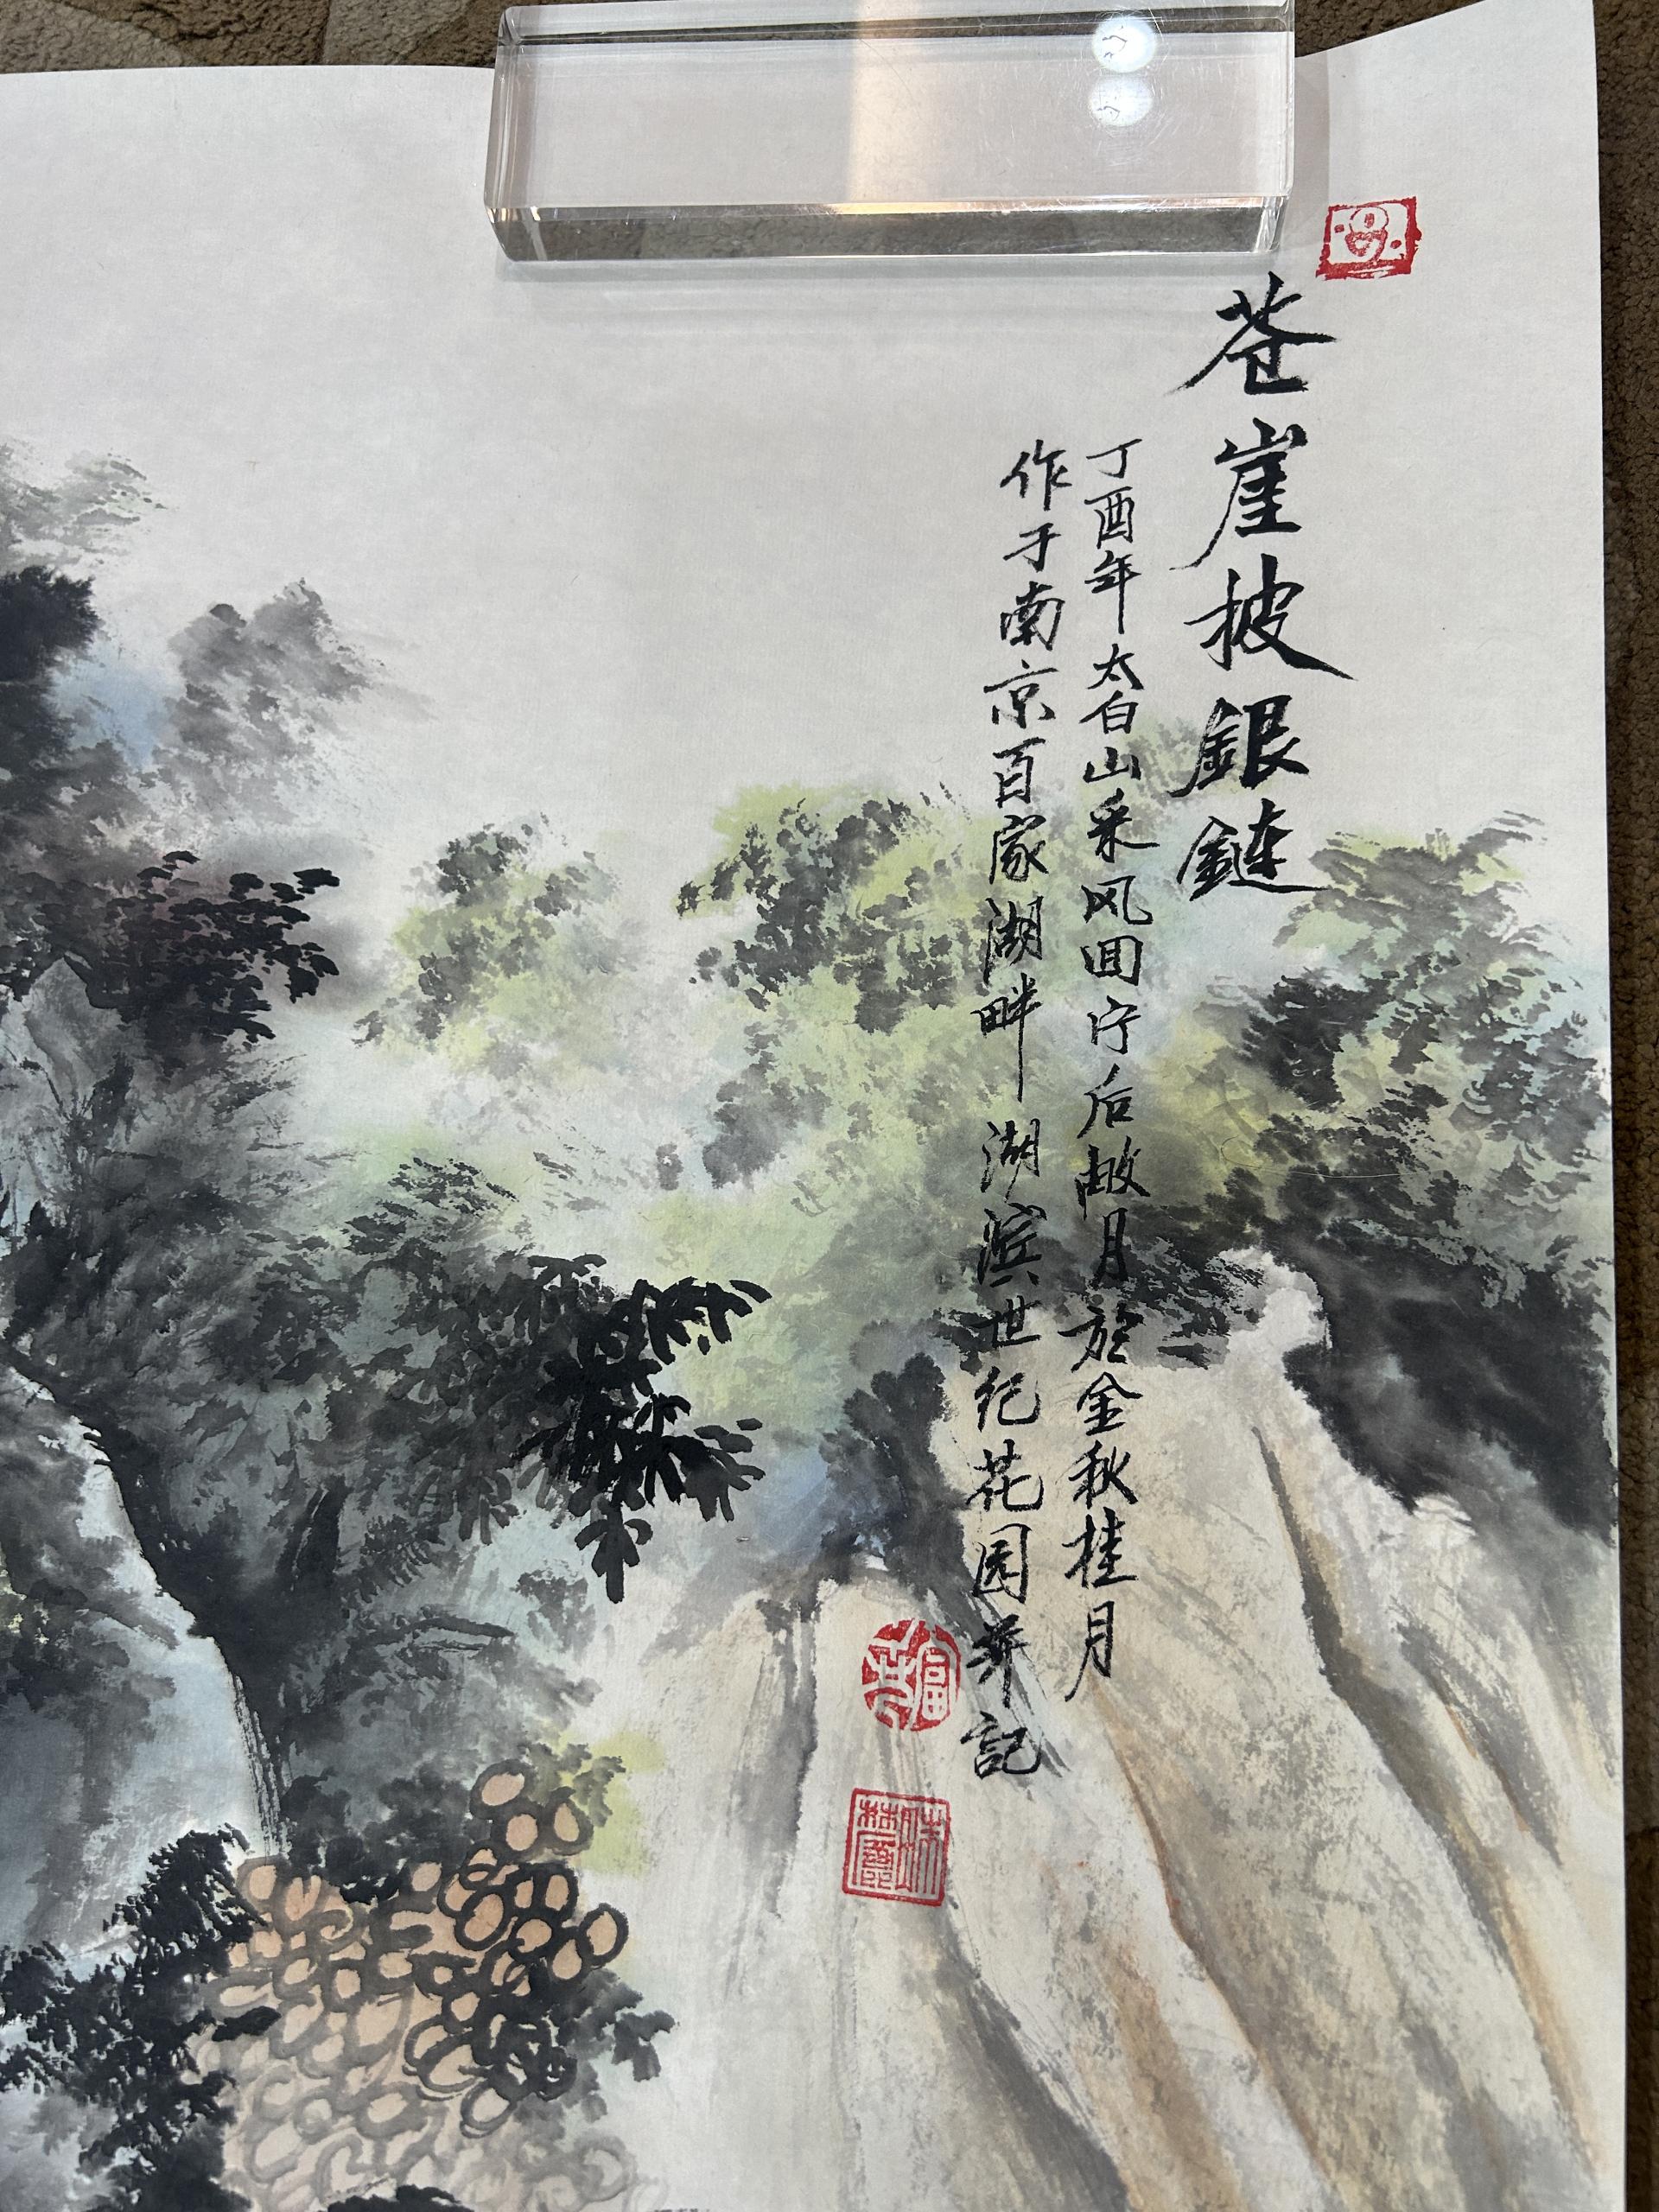 苍崖披銀鏈
丁酉年太白山采风囬宁后数月於金秋桂月
作于南京百家湖畔湖滨世纪花园并記